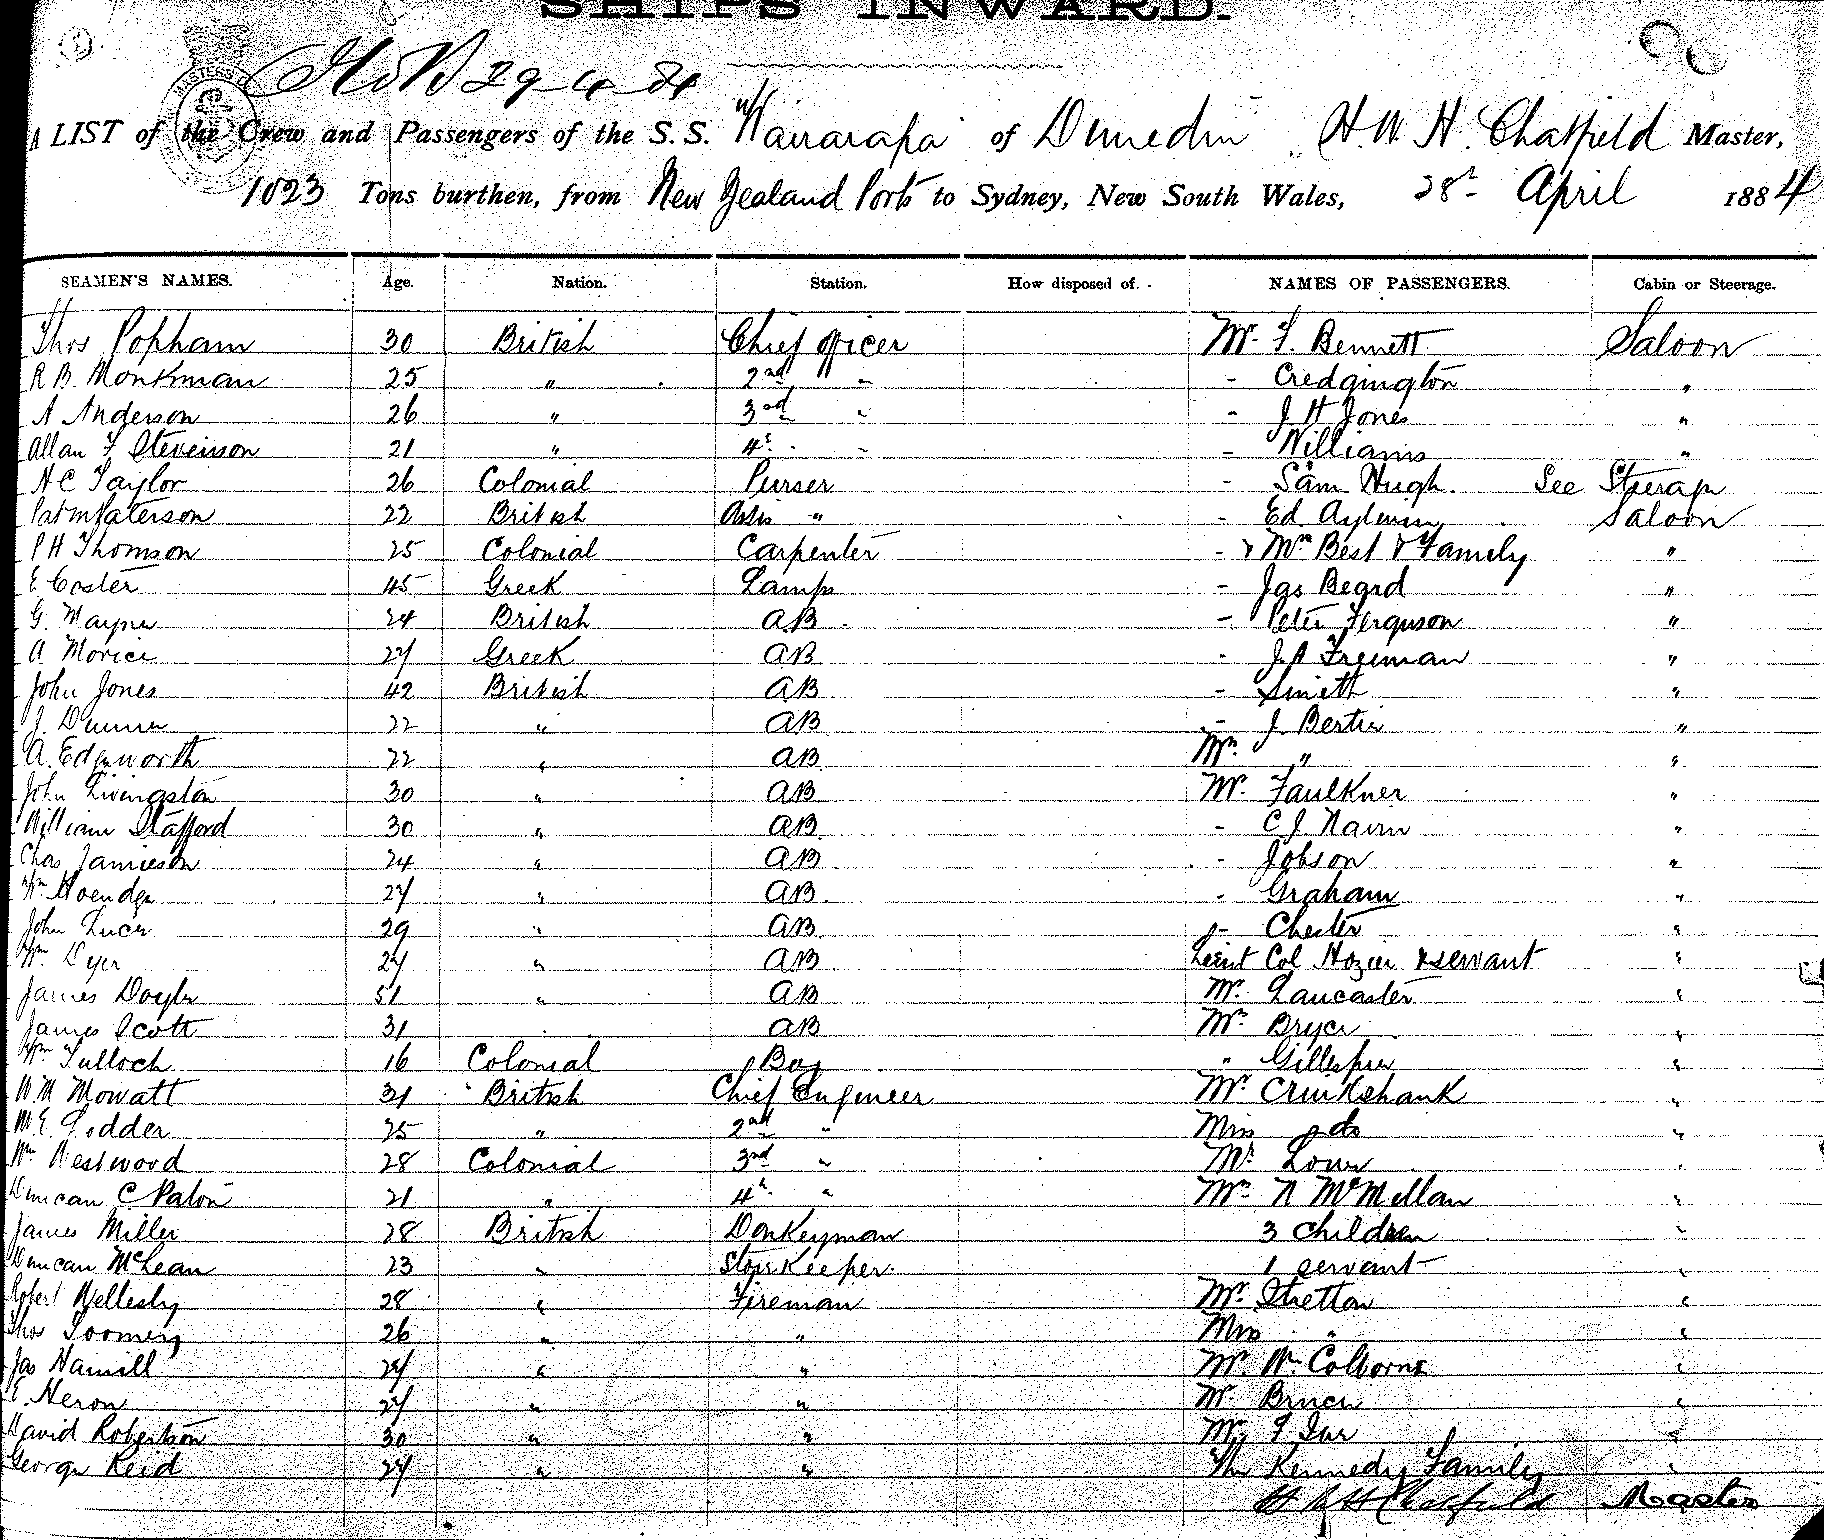 SHIPS INWARD.
29 4 84
A LIST of the Crew and Passengers of the S.S. "Wairarapa" of Dunedin H. W. H. Chatfield Master,
1023 Tons burthen, from New Zealand Ports to Sydney, New South Wales, 28th April 1884
SEAMEN'S NAMES. Age. Nation. Station. How disposed of. NAMES OF PASSENGERS. Cabin or Steerage.
Thos Popham 30 British Chief Officer Mr. F. Bennett Saloon
R B. Monkman 25 " 2nd " - Credgington "
A Anderson 26 " 3rd " - J H Jones "
Allan F Stevenson 21 " 4th " - Williams "
H C Taylor 26 Colonial Purser - Sam Hugh. See Steerage
Paterson 22 British Asst " - Ed. Saloon
P H Thomson 25 Colonial Carpenter - & Mrs Best & Family "
E Coster 45 Greek Lamps - Jas Beard "
G. Mayne 24 British AB - Peter Ferguson "
A Morice 27 Greek AB - J. A Freeman "
John Jones 42 British AB - Smith "
J. Dunne 22 " AB - J Bertie "
A. Edgeworth 22 " AB Mrs. " "
John Livingston 30 " AB Mr. Faulkner "
William Stafford 30 " AB - C J. Nairn "
Chas Jamieson 24 " AB - Jobson "
Wm 27 " AB - Graham "
John Lucy 29 " AB - Chester "
Wm. Dyer 27 " AB Lieut Col Hozier & servant "
James Doyle 51 " AB Mr. Lancaster "
James Scott 31 " AB Mrs. Bryce "
Wm Tulloch 16 Colonial Boy " Gillespie "
W. M Mowatt 31 British Chief Engineer Mr. Cruikshank "
M. E. Lodder 25 " 2nd " Miss do "
Wm Westwood 28 Colonial 3rd " Mr. Lowe "
Duncan C Paton 21 " 4th " Mrs N McMillan "
James Miller 28 British Donkeyman 3 Children "
Duncan McLean 23 " Storekeeper 1 servant "
Robert Wellesly 28 " Fireman Mr. Stretton "
Thos Toomey 26 " " Mrs " "
Jas Hamill 24 " " Mr. Wm Colborne "
E. Heron 27 " " Mr Bruce "
David Robertson 30 " " Mr. F "
George Reid 27 " " The Kennedy Family "
H W H Chatfield Master